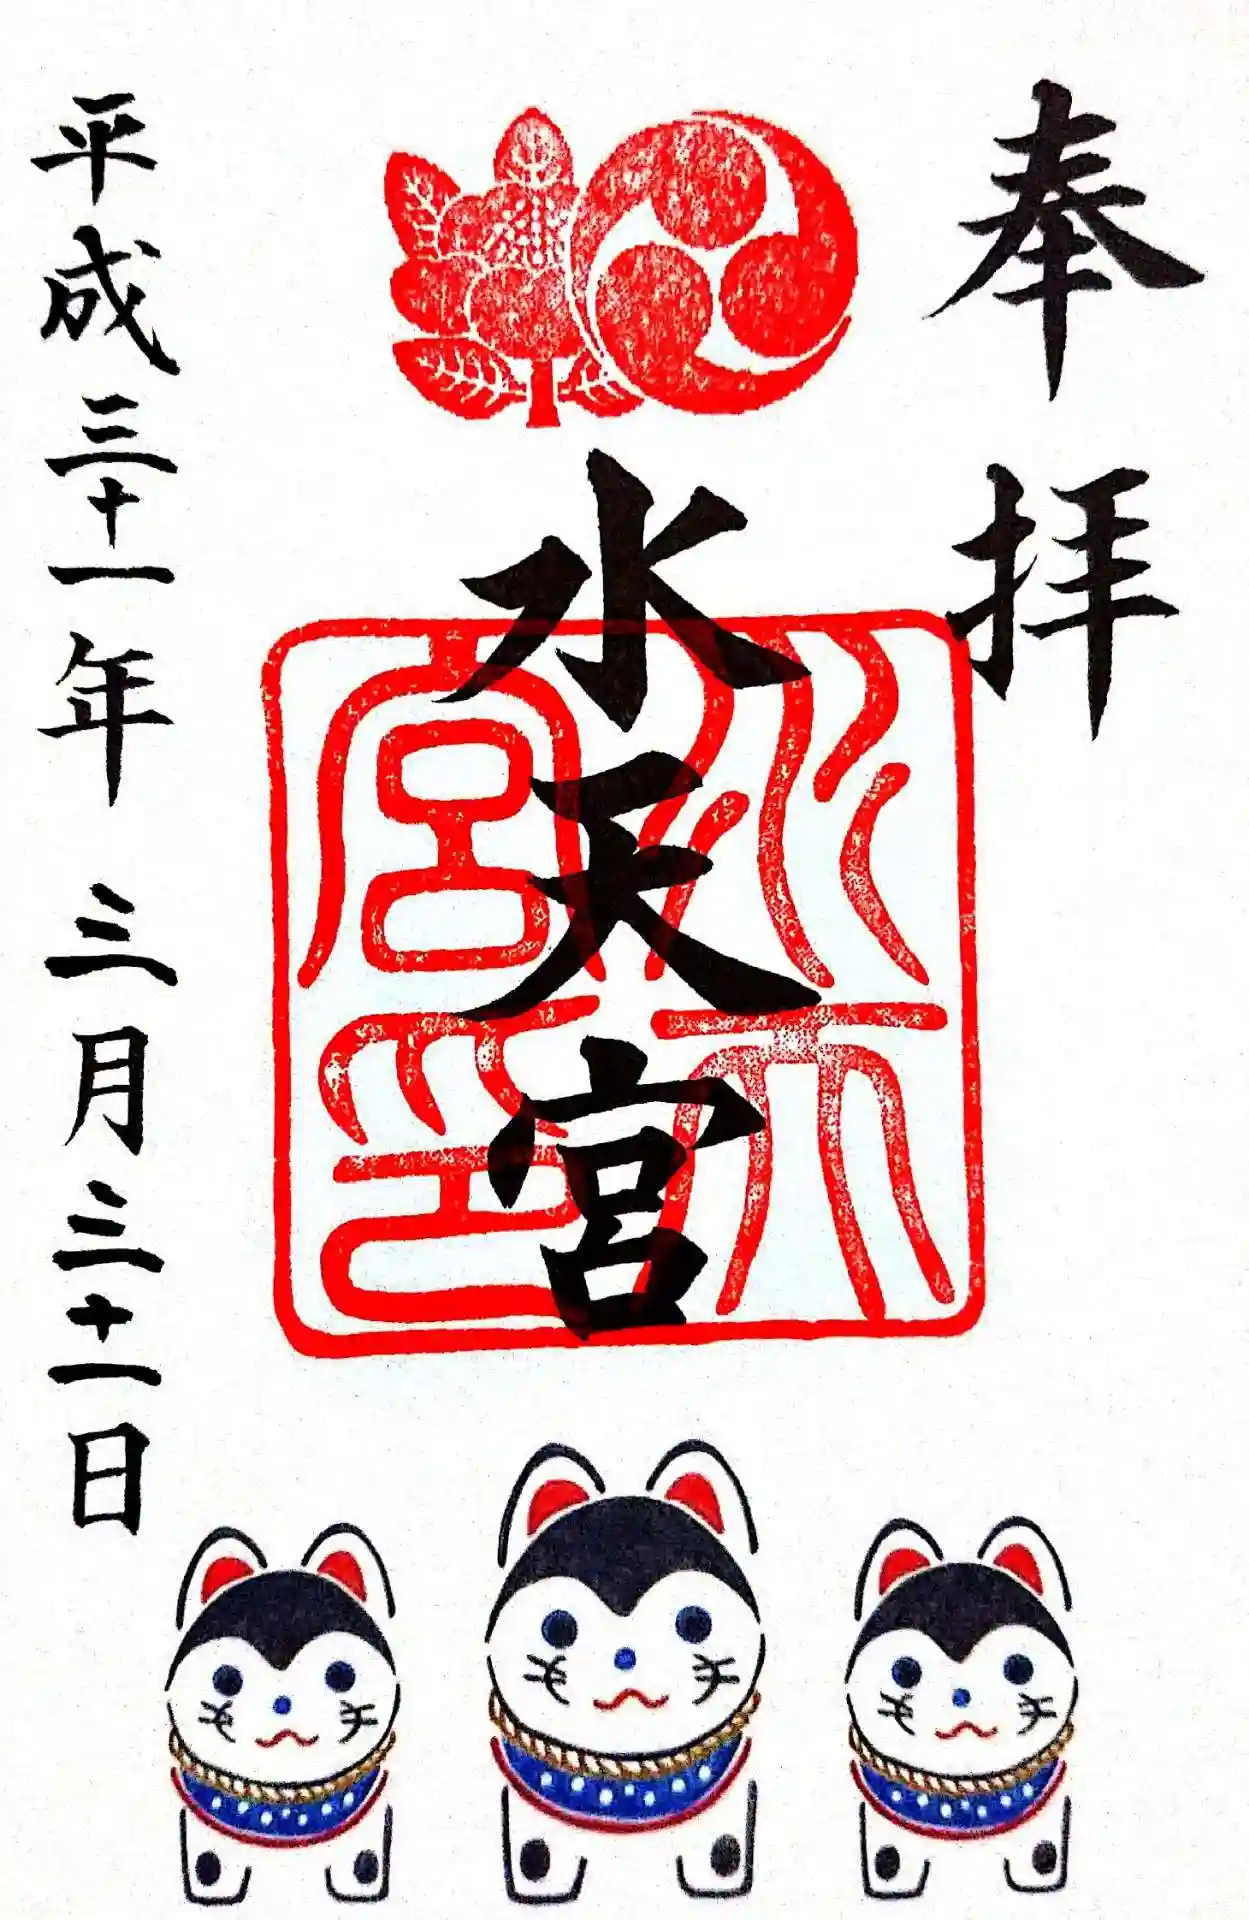 奉拝
水天宮
水天宮印
平成三十一年 三月三十一日